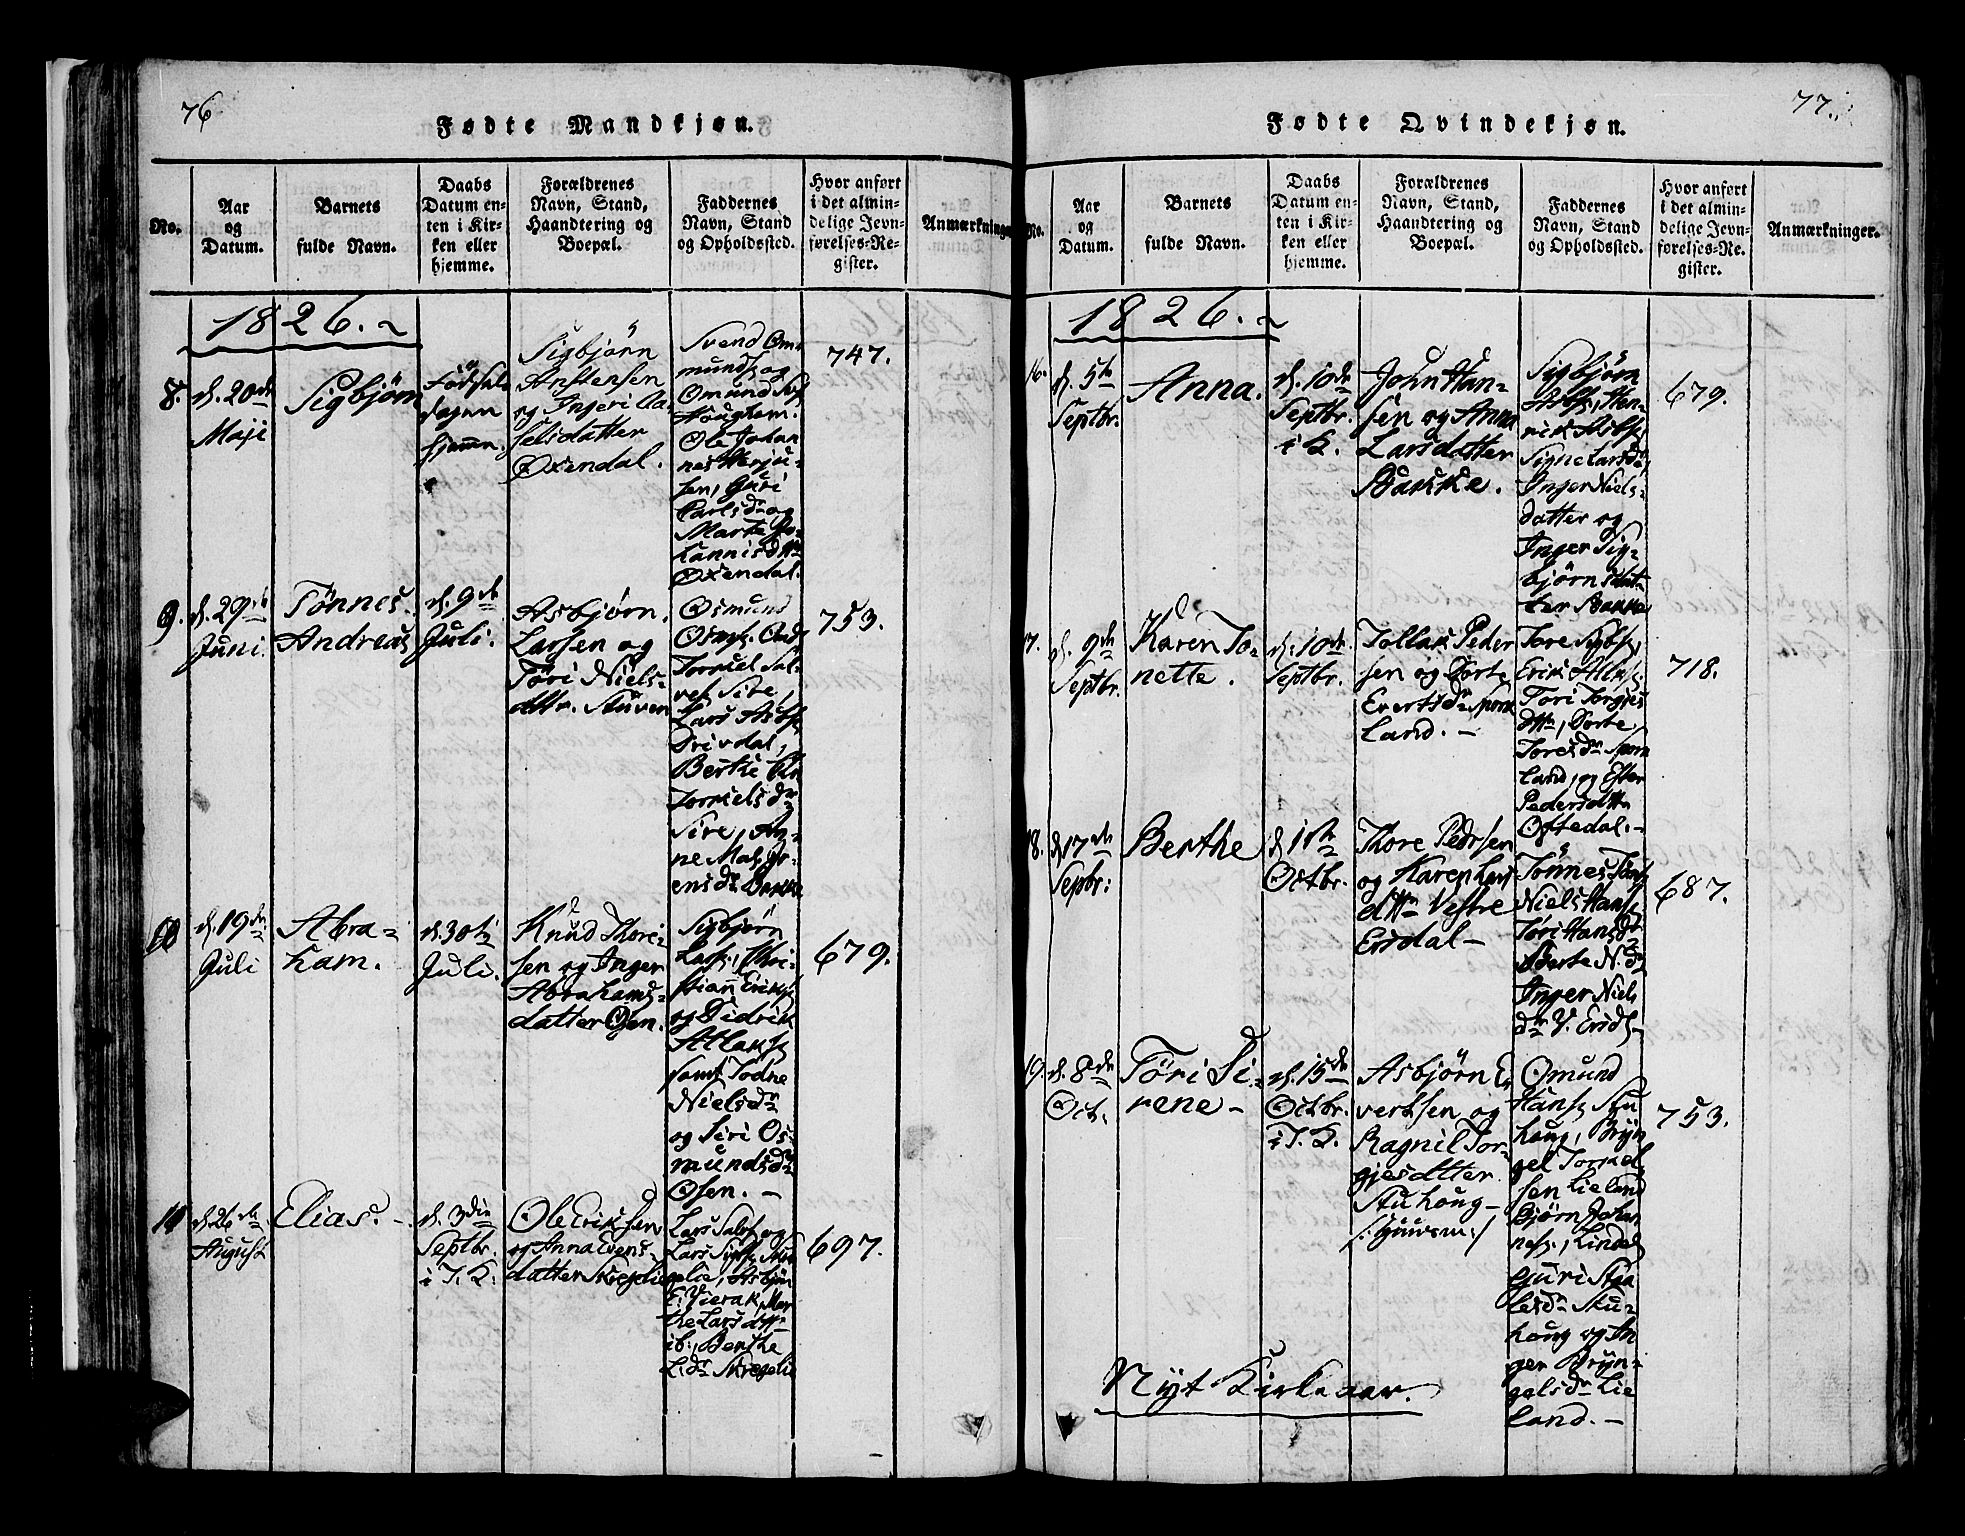 76
Fødte Mandkjøn.
No.
Aar
og
Datum.
Barnets
fulde Navn.
Daabs
Datum en-
ten i Kir-
ken eller
hjemme.
Forældrenes
Navn, Stand,
Haandtering og
Boepæl.
Faddernes
Navn, Stand
og Opholdssted.
Hvor anført
i det almin-
delige Jevn-
førelses-Re-
gister.
Anmærkninger
1826.
8.
d. 20de
Maji
Sigbjørn
Fødsels
dagen
hjemme
Sigbjørn
Anstensen
og Ingeri
datter
Oxendal.
Svend Om-
munds. og
Omund
Houghem.
Ole Johan
nes Herju-
sen, Guri
Carlsdr og
Marte Jo-
hannisdttr
Oxendal.
747.
9.
d. 29de
Juni.
Tønnes
Andreas
d. 9de
Juli.
Asbjørn
Larsen og
Tøri Niels-
dttr. Stüven
Osmund
Torkiel Sal-
ves. Sire,
Lars Asbs.
Drivdal,
Berthe
Torkielsdr
Sire, An-
ne
ensdr Bakke
753.
10
d. 19de
Juli
Abra-
ham.
d. 30te
Juli.
Knud Thori-
sen og Inger
Abrahams-
datter Osen.
Sigbjørn
Lars., Chri-
stian Eriks.
og Didrik
Atlaks.
samt Todne
Nielsdr
og Siri Os-
mundsdr
Osen. -
679.
11
d. 26de
August
Elias. -
d. 3die
Septbr.
i T. K.
Ole Eriksen
og Anna Evens-
datter Skregelie
Lars Salvs. og
Lars Sigbs. Skre
gelie, Asbjørn
E. Vierak, Mar
the Larsdttr
ib., Berthe
L.dr Skregelie
697.
77.
Fødte Qvindekjøn.
No.
Aar
og
Datum.
Barnets
fulde Navn.
Daabs
Datum en-
ten i Kir-
ken eller
hjemme.
Forældrenes
Navn, Stand,
Haandtering og
Boepæl.
Faddernes
Navn, Stand
og Opholdssted.
Hvor anført
i det almin-
delige Jevn-
førelses-Re-
gister.
Anmærkninger.
1826.
16.
d. 5te
Septbr.
Anna.
d. 10de
Septbr.
i K.
John Han-
sen og Anna
Larsdatter
Bakke.
Sigbjørn
Asbs., Hen-
rik Asbs.
Signe Larsdr,
Inger Niels-
datter og
Inger Sig-
bjørnsdat-
ter Bakke
679.
17.
d. 9de
Septbr.
Karen To-
nette.
d. 10de
Septbr.
Tollak Peder
sen og Dorte
Evertsdr Spork
land. -
Tore Sigbs.,
Erik Atlaks.
Tøri Torgjes
dttr, Dorte
Toresdr Spork
land, og Ester
Pedersdttr
Oftedal. -
718.
18.
d 17de
Septbr:
Berthe
d 1ste
Octbr.
Thore Pedrsen
og Karen Hans
dttr Vestre
Eersdal -
Tønnes Tøns.
Niels Hans.
Tøri Hansdr
Berte N.dr
Inger Niels
dr V. Ersd.
687.
19.
d. 8de
Oct.
Tøri Si-
rene -
d. 15de
Octbr.
i T. K.
Asbjørn E
vertsen og
Ragnil Tor-
gjesdtter
Stuhoug -
Omund
Hans. Stu
houg, Bryn
gel Torkel
sen Lieland
Bjørn Johan
nes.,
Guri Staa
lesdr Stu-
houg og In
ger Bryn-
gelsdr Lie
land. -
753.
Nyt Kirkeaar.